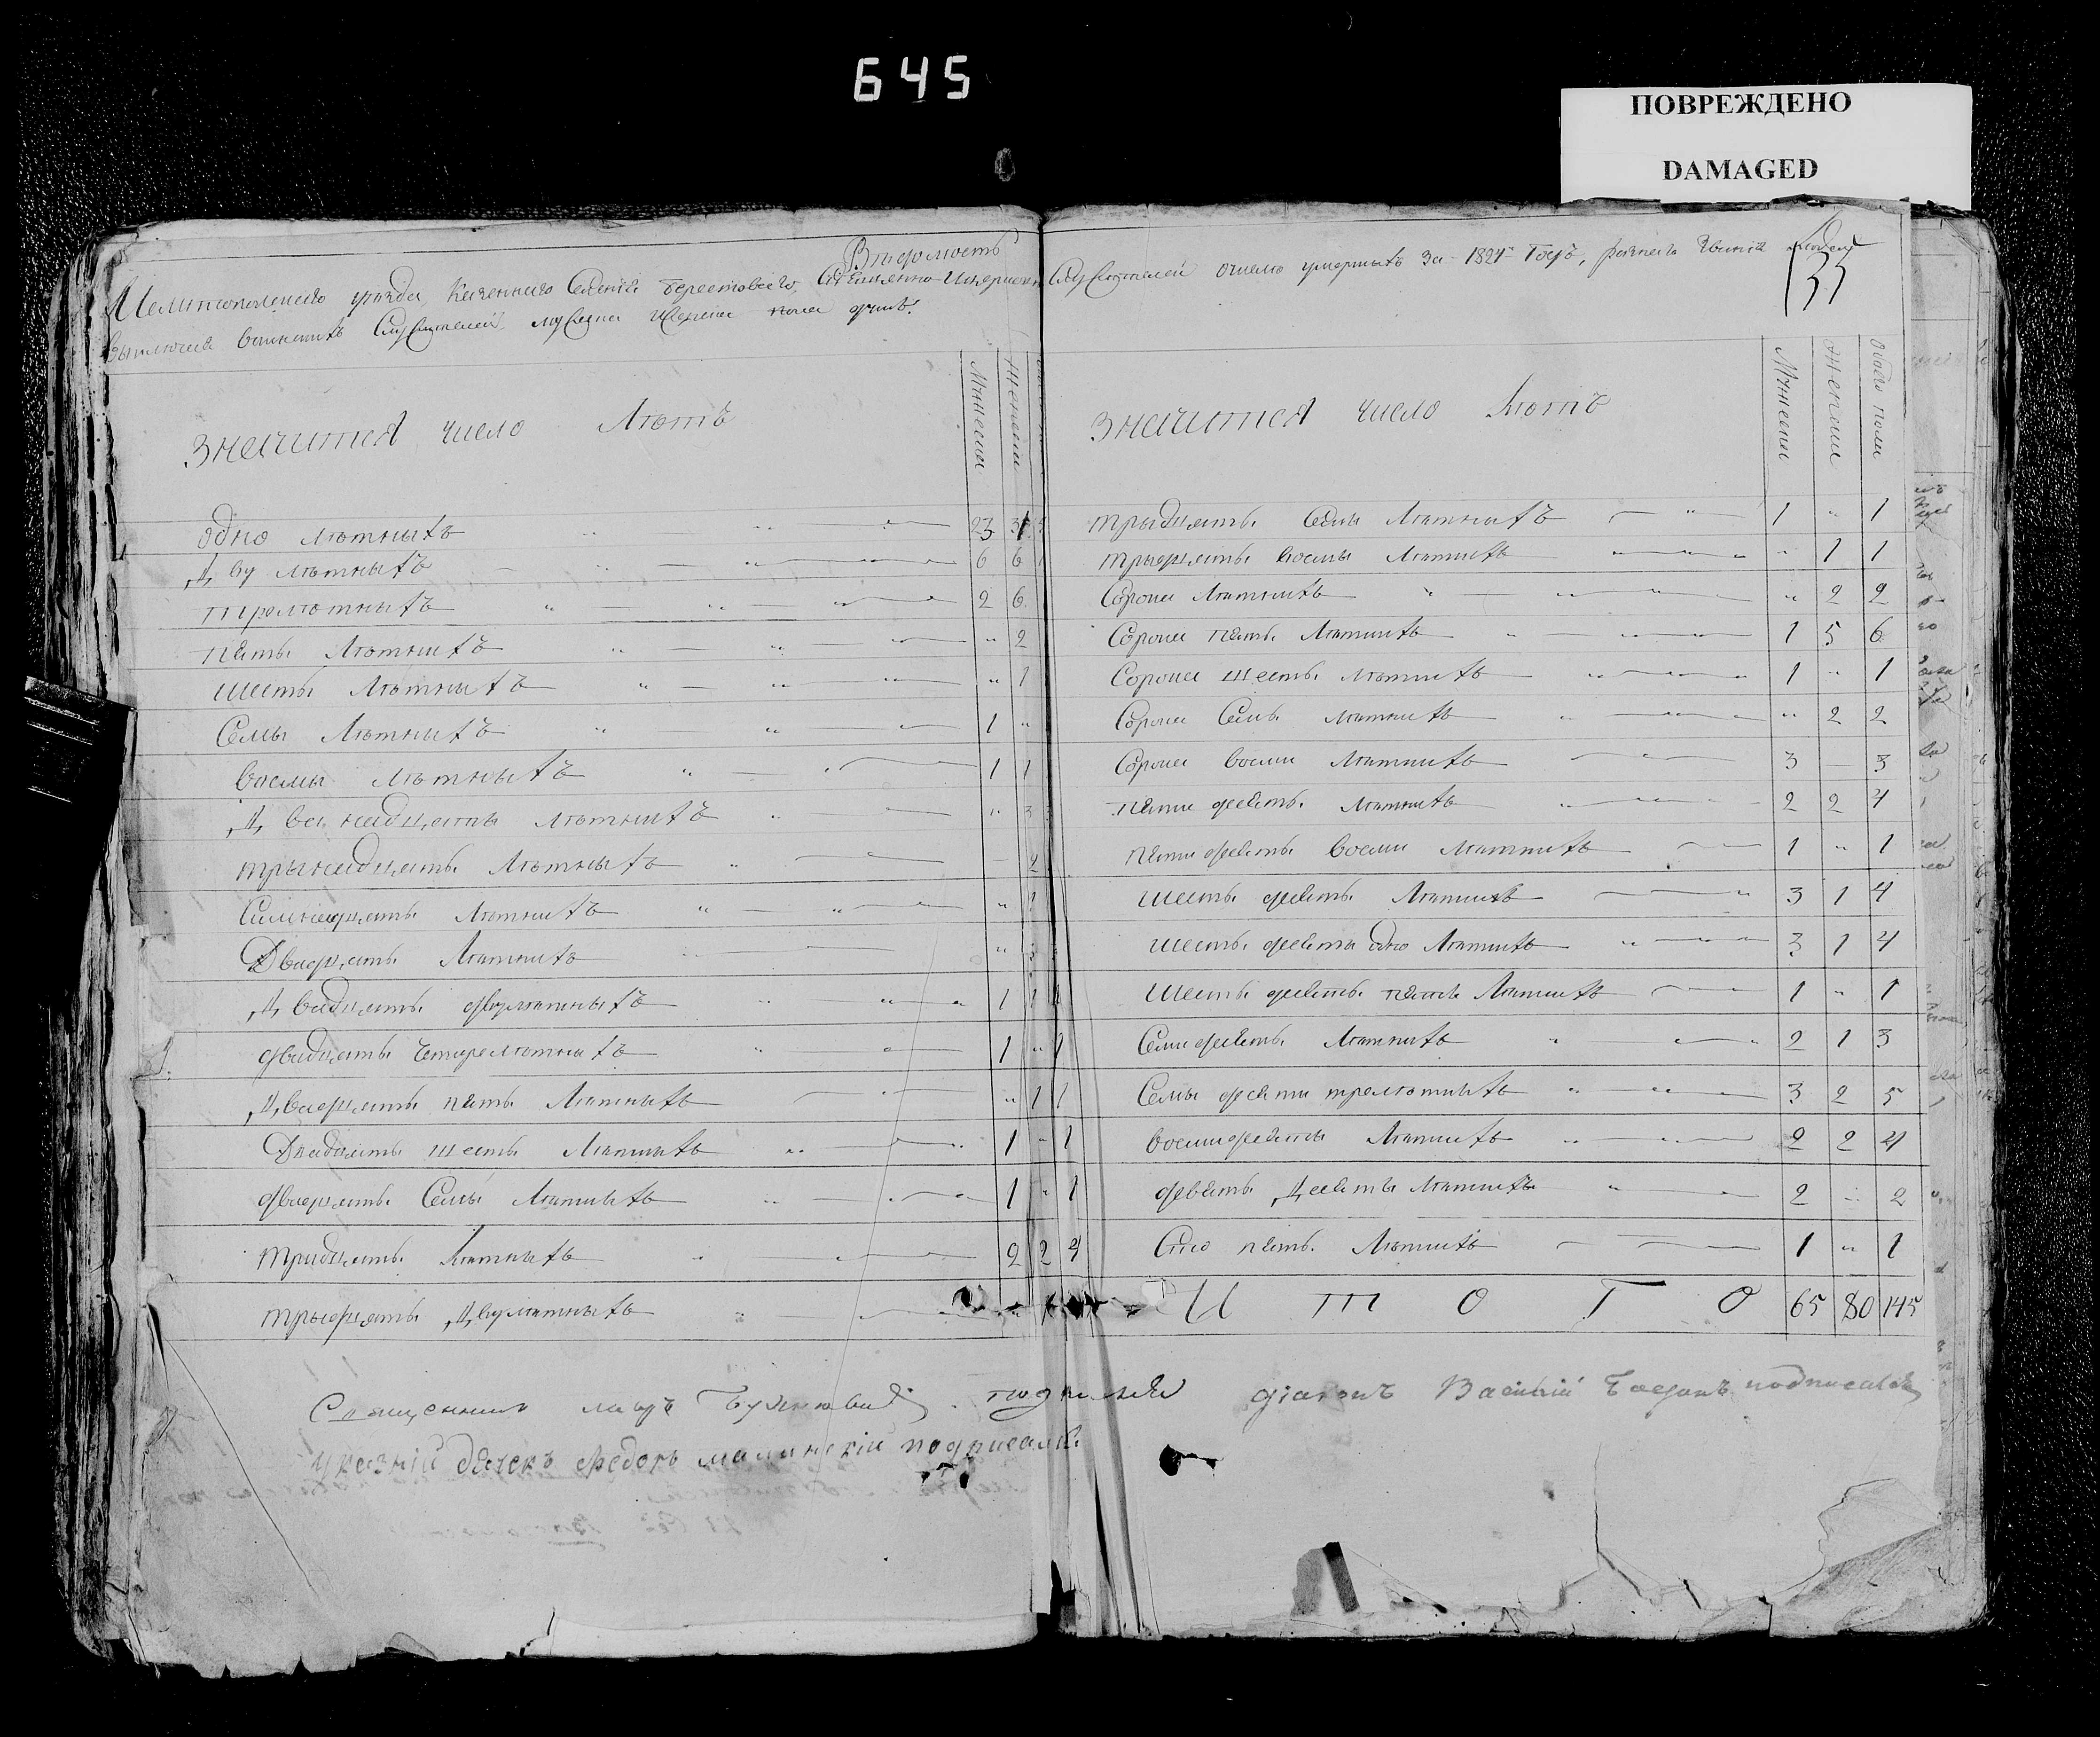 645
ПОВРЕЖДЕНО
DAMAGED
Вѣдомость
Мелитопольскаго уѣзда казеннаго селенія Берестоваго
служителей о числѣ умершихъ за 1824 годъ, разнаго званія людей
35
выключая воинскихъ служителей мужеска женска пола душъ.
Значится число лѣтъ
Мужеска
Женска
одно лѣтныхъ 23 31
Двулѣтныхъ 6 6
трелѣтныхъ 2 6
пять лѣтныхъ " 2
шесть лѣтныхъ " 1
Семы лѣтныхъ 1 "
восмы лѣтныхъ 1 1
Двенадцать лѣтныхъ " 3
трынадцать лѣтныхъ 2
Симнадцать лѣтныхъ " 1
Двадцать лѣтныхъ " 3
Двадцать двулѣтныхъ 1 1
двадцать четырелѣтныхъ 1 " 1
Двадцать пять лѣтныхъ " 1 1
Двадцать шесть лѣтныхъ 1 " 1
двадцать Семы лѣтныхъ 1 " 1
тридцать лѣтныхъ 2 2 4
трыдцать Двулѣтныхъ "
Значится число лѣтъ
Мужеска
Женска
Обоего пола
трыдцать Седмы лѣтныхъ 1 " 1
трыдцать восмы лѣтныхъ " 1 1
Сорока лѣтныхъ " 2 2
Сорока пять лѣтныхъ 1 5 6
Сорока шесть лѣтныхъ 1 " 1
Сорока Семь лѣтныхъ " 2 2
Сорока восми лѣтныхъ 3 3
пятидесять лѣтныхъ 2 2 4
пятидесять восми лѣтныхъ 1 " 1
шестьдесять лѣтныхъ 3 1 4
шестьдесять одно лѣтныхъ 3 1 4
шестьдесять пять лѣтныхъ 1 " 1
Семидесять лѣтныхъ 2 1 3
Семыдесяти трелѣтныхъ 3 2 5
восмидесяты лѣтныхъ 2 2 4
девять Десяты лѣтныхъ 2 2
Сто пять лѣтныхъ 1 " 1
Итого 65 80 145
Священникъ подписался
діаконъ Василій подписался
указній дячекъ Федоръ малинскій подписался